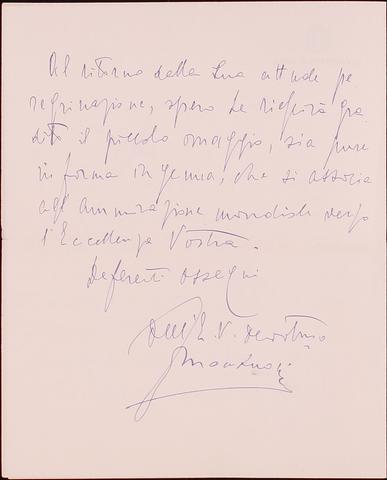 Al ritorno dalla Sua attuale pe
regrinazione, spero Le riescirà gra
dito il piccolo omaggio, sia pure
in forma ingenua, che si associa
all'ammirazione mondiale verso
l'Eccellenza Vostra.
Deferenti ossequi
Dell'E. V. devotissimo